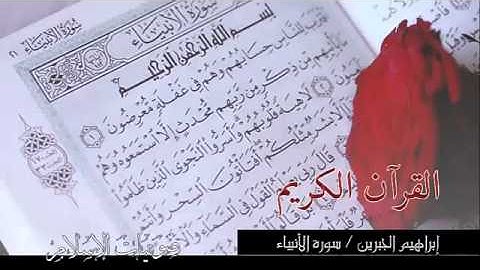 سورة الأنبياء
سورة الأنبياء
بسم الله الرحمن الرحيم
اقترب للناس حسابهم وهم في غفلة معرضون
من ذكر من ربهم محدث إلا استمعوه وهم
لاهية قلوبهم وأسروا النجوى الذين ظلموا
إلا بشر مثلكم أفتأتون السحر وأنتم
قال ربي يعلم القول في السماء
القرآن الكريم
إبراهيم الجبرين / سورة الأنبياء
صوتيات الإسلام